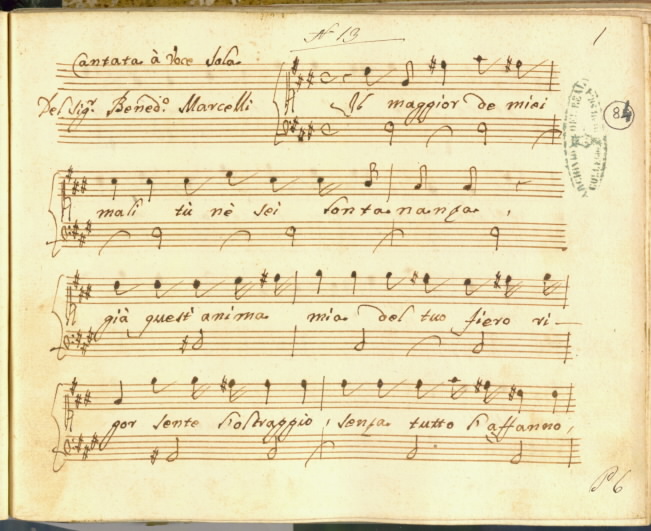 N 13
1
Cantata à Voce Sola
Del Sigr. Bened.o Marcelli
Il maggior de miei
84
mali tù nè sei lontananza,
già quest' anima mia del tuo fiero ri-
gor sente l'oltraggio, senza tutto l'affanno,
P 6